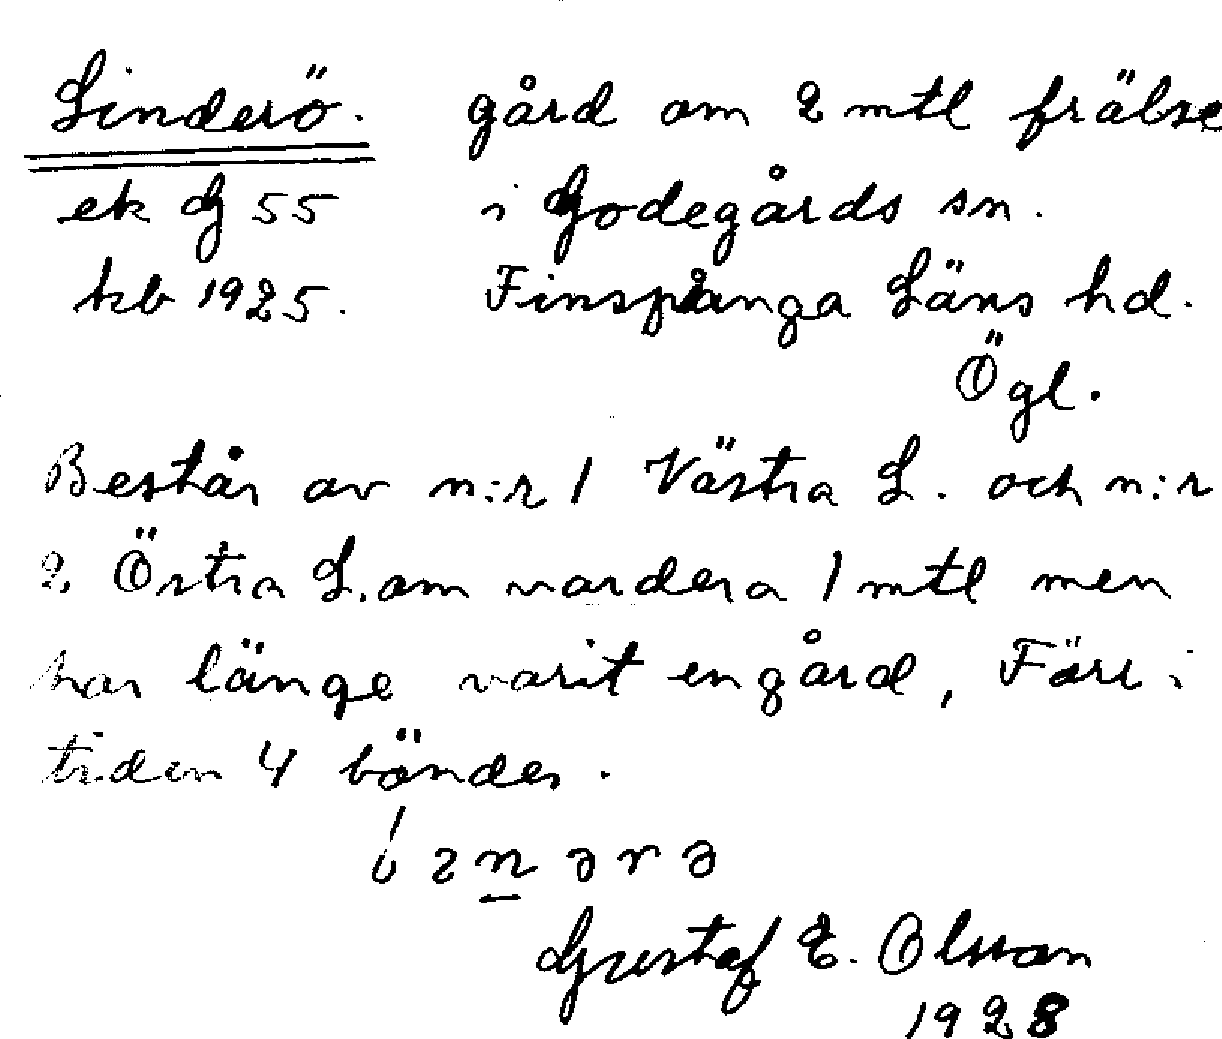 Linderö. gård om 2 mtl frälse
ek G 55 i Godegårds sn.
kb 1925. Finspånga Läns hd.
Ögl.
Består av n:r 1 Västra L. och n:r
2. Östra L. om vardera 1 mtl men
har länge varit en gård, Förr i
tiden 4 bönder.
Gustaf E. Olsson
1928